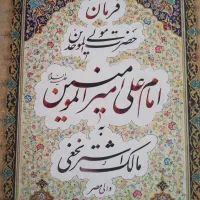 فرمان
حضرت مولی الموحدین
امام علی امیرالمومنین
به
مالک اشتر نخعی
والی مصر